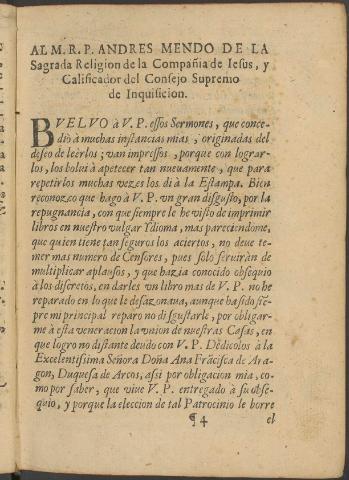 AL M. R. P. ANDRES MENDO DE LA
Sagrada Religion de la Compañia de Iesus, y
Calificador del Consejo Supremo
de Inquisicion.
BVELVO à V. P. essos Sermones, que conce-
diò à muchas instancias mias, originadas del
deseo de leerlos; van impressos, porque con lograr-
los, los bolui à apetecer tan nueuamente, que para
repetirlos muchas vezes los di à la Estampa. Bien
reconozco que hago à V. P. vn gran disgusto, por la
repugnancia, con que siempre le he visto de imprimir
libros en nuestro vulgar Ydioma, mas pareciendome,
que quien tiene tan seguros los aciertos, no deue te-
mer mas numero de Censores, pues solo seruiràn de
multiplicar aplausos, y que hazia conocido obsequio
à los discretos, en darles vn libro mas de V. P. no he
reparado en lo que le desazonaua, aunque ha sido siē-
pre mi principal reparo no disgustarle, por obligar-
me à esta veneracion la vnion de nuestras Casas, en
que logro no distante deudo con V. P. Dèdicolos à la
Excelentissima Señora Doña Ana Frācisca de Ara-
gon, Duquesa de Arcos, assi por obligacion mia, co-
mo por saber, que viue V. P. entregado à su obse-
quio, y porque la eleccion de tal Patrocinio le borre
¶ 4 el